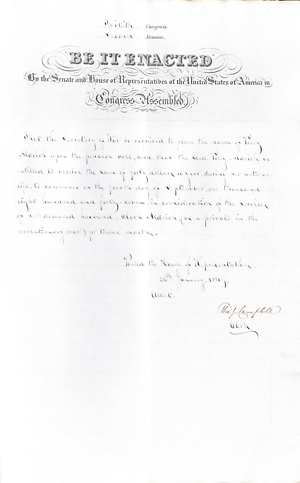 Congress,
Session,
BE IT ENACTED
By the Senate and House of Representatives of the United States of America in
Congress Assembled
That the Secretary of War is required to place the name of
upon the pension roll, and that the said
entitled to receive the sum of forty dollars a year, during her natural
life, to commence on the fourth day of September, one thousand
eight hundred and forty in consideration of the services
of her deceased husband, as a private in the
revolutionary war, for three months.
Passed the House of Representatives
January,
Attest.
Campbell
Clerk